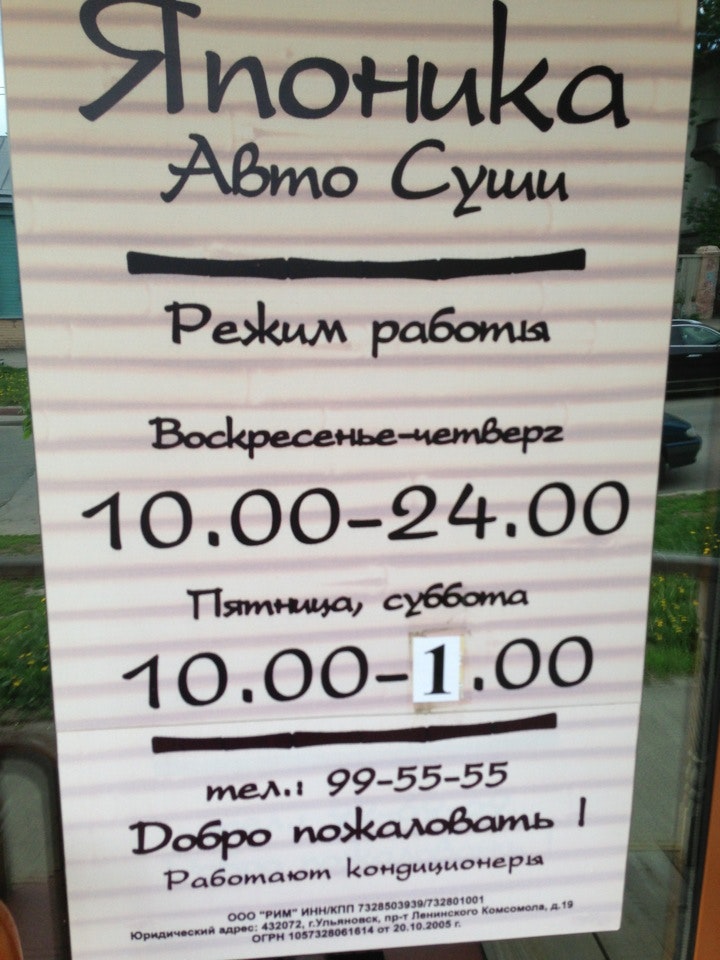 Японика
Авто Суши
Режим работы
Воскресенье-четверг
10.00-24.00
Пятница, суббота
10.00-1.00
тел.: 99-55-55
Добро пожаловать !
Работают кондиционеры
ООО "РИМ" ИНН/КПП 7328503939/732801001
Юридический адрес: 432072, г.Ульяновск, пр-т Ленинского Комсомола, д.19
ОГРН 1057328061614 от 20.10.2005 г.